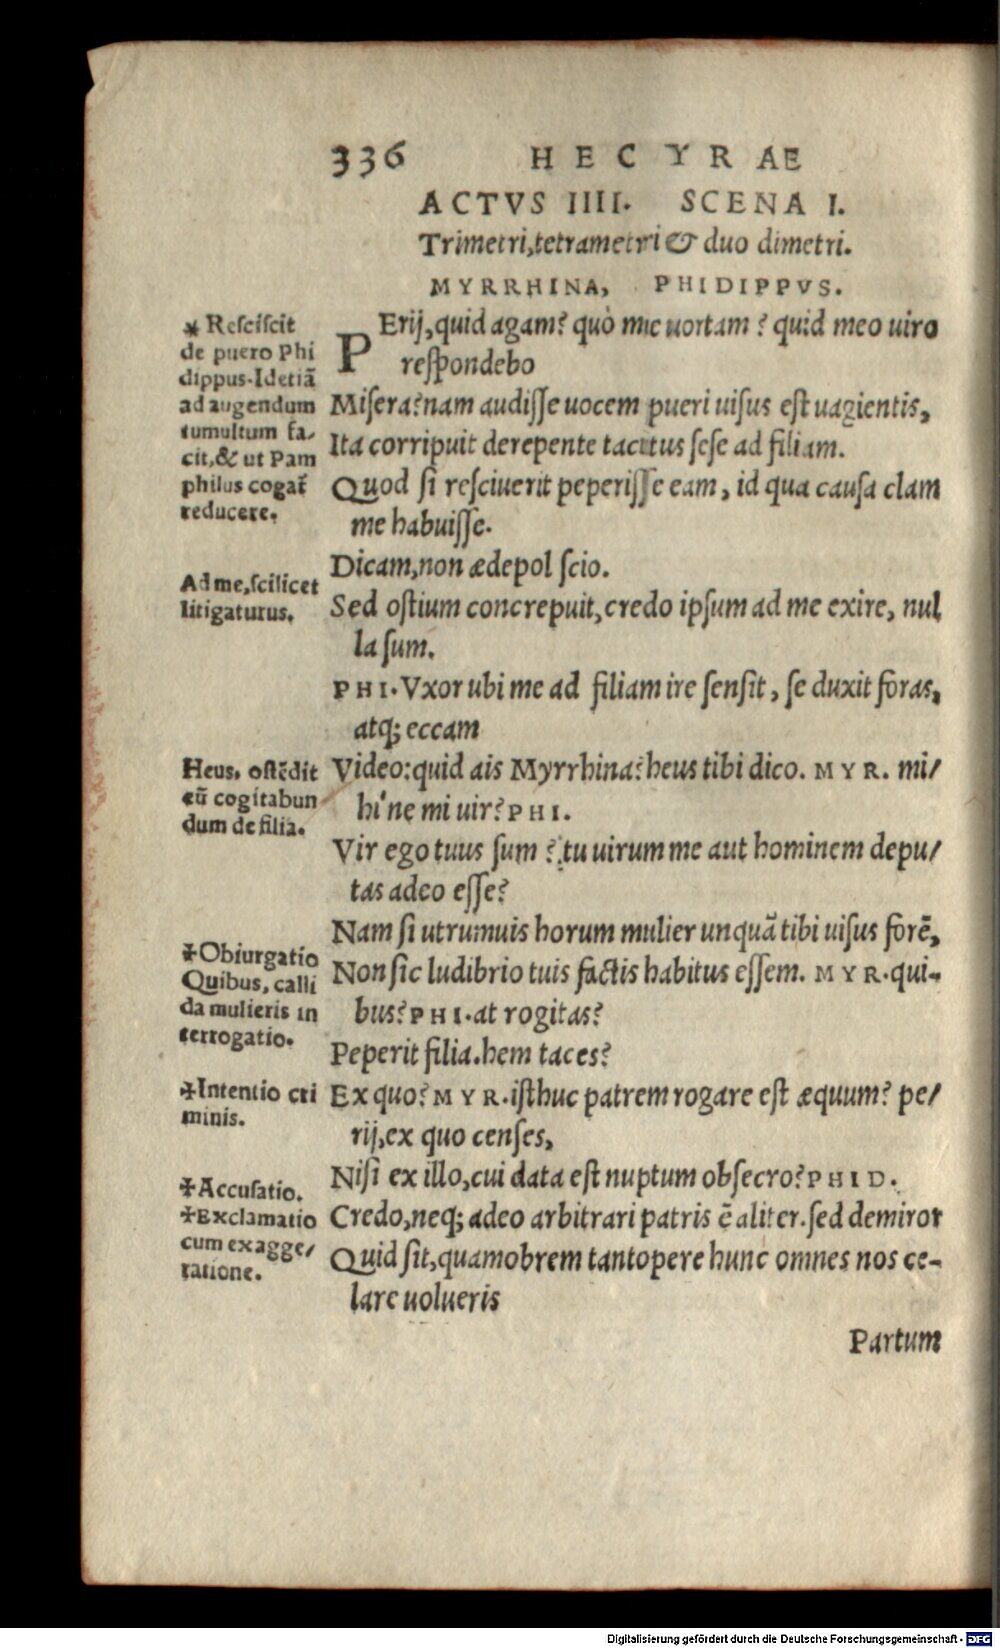 336 HECYRAE
ACTVS IIII. SCENA I.
Trimetri, tetrametri & duo dimetri.
MYRRHINA, PHIDIPPVS.
PErij, quid agam? quò me uortam? quid meo uiro
respondebo
Misera? nam audisse uocem pueri uisus est uagientis,
Ita corripuit derepente tacitus sese ad filiam.
Quod si resciuerit peperisse eam, id qua causa clam
me habuisse.
Dicam, non ædepol scio.
Sed ostium concrepuit, credo ipsum ad me exire, nul
la sum.
PHI. Vxor ubi me ad filiam ire sensit, se duxit foras,
atq; eccam
Video: quid ais Myrrhina? heus tibi dico. MYR. mi/
hi'ne mi uir? PHI.
Vir ego tuus sum? tu uirum me aut hominem depu/
tas adeo esse?
Nam si utrumuis horum mulier unquā tibi uisus forē,
Non sic ludibrio tuis factis habitus essem. MYR. qui-
bus? PHI. at rogitas?
Peperit filia. hem taces?
Ex quo? MYR. isthuc patrem rogare est æquum? pe/
rij, ex quo censes,
Nisi ex illo, cui data est nuptum obsecro? PHID.
Credo, neq; adeo arbitrari patris ē aliter. sed demiror
Quid sit, quamobrem tantopere hunc omnes nos ce-
lare uolueris
Partum
* Resciscit
de puero Phi
dippus. Idetiā
ad augendum
tumultum fa/
cit, & ut Pam
philus cogat̄
reducere.
Ad me, scilicet
litigaturus.
Heus, ostēdit
eū cogitabun
dum de filia.
✠Obiurgatio
Quibus, calli
da mulieris in
terrogatio.
✠Intentio cri
minis.
✠Accusatio.
✠Exclamatio
cum exagge/
ratione.
Digitalisierung gefördert durch die Deutsche Forschungsgemeinschaft - DFG